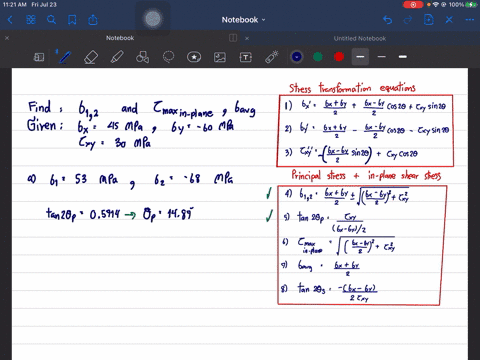 11:21 AM Fri Jul 23
100%
Notebook
Notebook
Untitled Notebook
Find : σ1,2 and τmax in-plane , σavg
Given : σx = 45 MPa , σy = -60 MPa
τxy = 30 MPa
a) σ1 = 53 MPa , σ2 = -68 MPa
tan2θp = 0.5714 → θp = 14.87°
Stress transformation equations
1) σx' = σx + σy / 2 + σx - σy / 2 cos2θ + τxy sin2θ
2) σy' = σx + σy / 2 - σx - σy / 2 cos2θ - τxy sin2θ
3) τx'y' = -(σx - σy / 2 sin2θ) + τxy cos2θ
Principal stress + in-plane shear stress
✓ 4) σ1,2 = σx + σy / 2 ± √(σx - σy / 2)² + τ²xy
✓ 5) tan 2θp = τxy / (σx - σy)/2
6) τmax in-plane = √(σx - σy / 2)² + τ²xy
7) σavg = σx + σy / 2
8) tan 2θs = -(σx - σy) / 2τxy